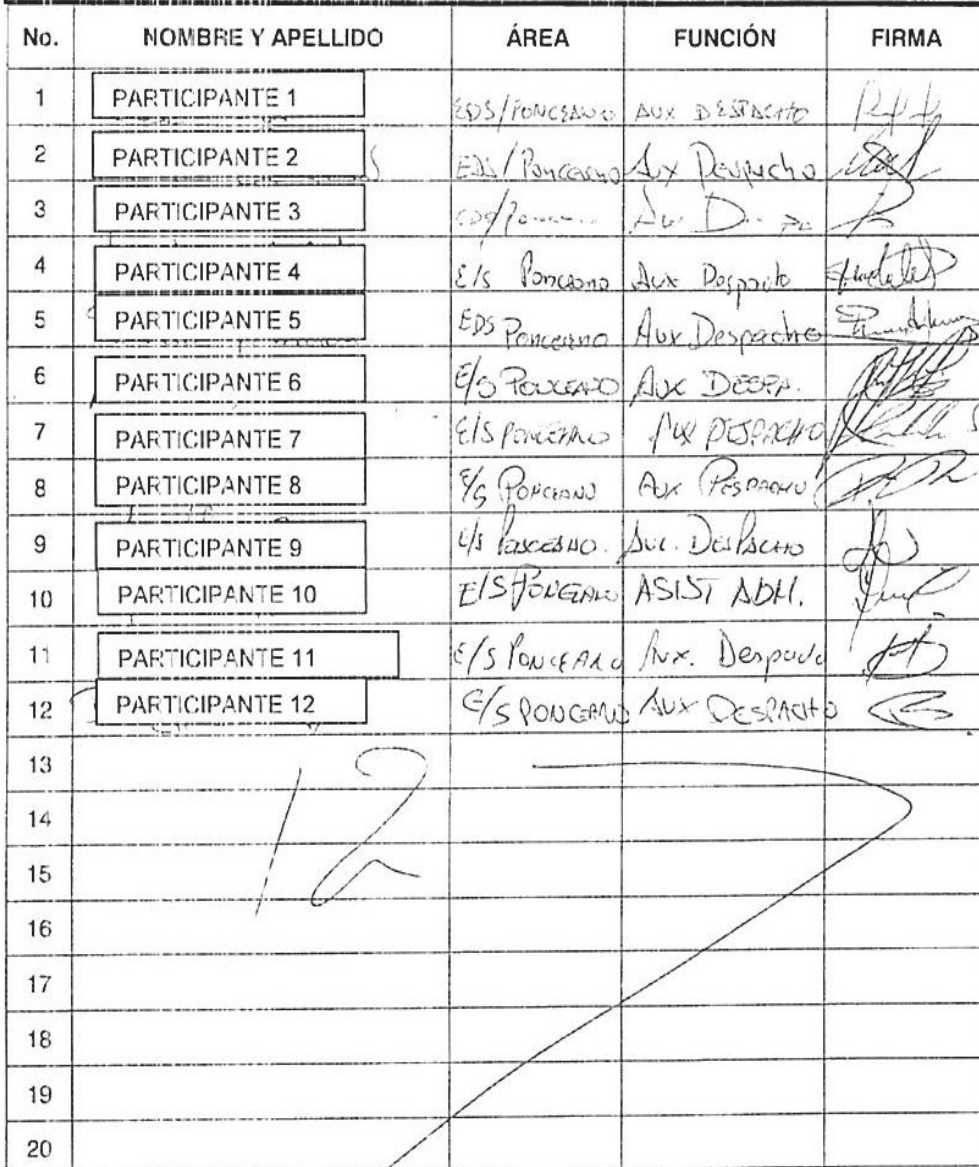 No. NOMBRE Y APELLIDO ÁREA FUNCIÓN FIRMA
1 PARTICIPANTE 1 EDS/PONCEANO AUX DESPACHO
2 PARTICIPANTE 2 EDS/Ponceano Aux Despacho
3 PARTICIPANTE 3
4 PARTICIPANTE 4 E/S Ponceano Aux Despacho
5 PARTICIPANTE 5 EDS Ponceano Aux Despacho
6 PARTICIPANTE 6 E/S PONCEANO AUX DESPA.
7 PARTICIPANTE 7 E/S PONCEANO AUX DESPACHO
8 PARTICIPANTE 8 E/S PONCEANO AUX DESPACHO
9 PARTICIPANTE 9 E/S PONCEANO. AUX. DESPACHO
10 PARTICIPANTE 10 E/S PONCEANO ASIST ADM.
11 PARTICIPANTE 11 E/S PONCEANO Aux. Despacho
12 PARTICIPANTE 12 E/S PONCEANO AUX DESPACHO
13
12
14
15
16
17
18
19
20